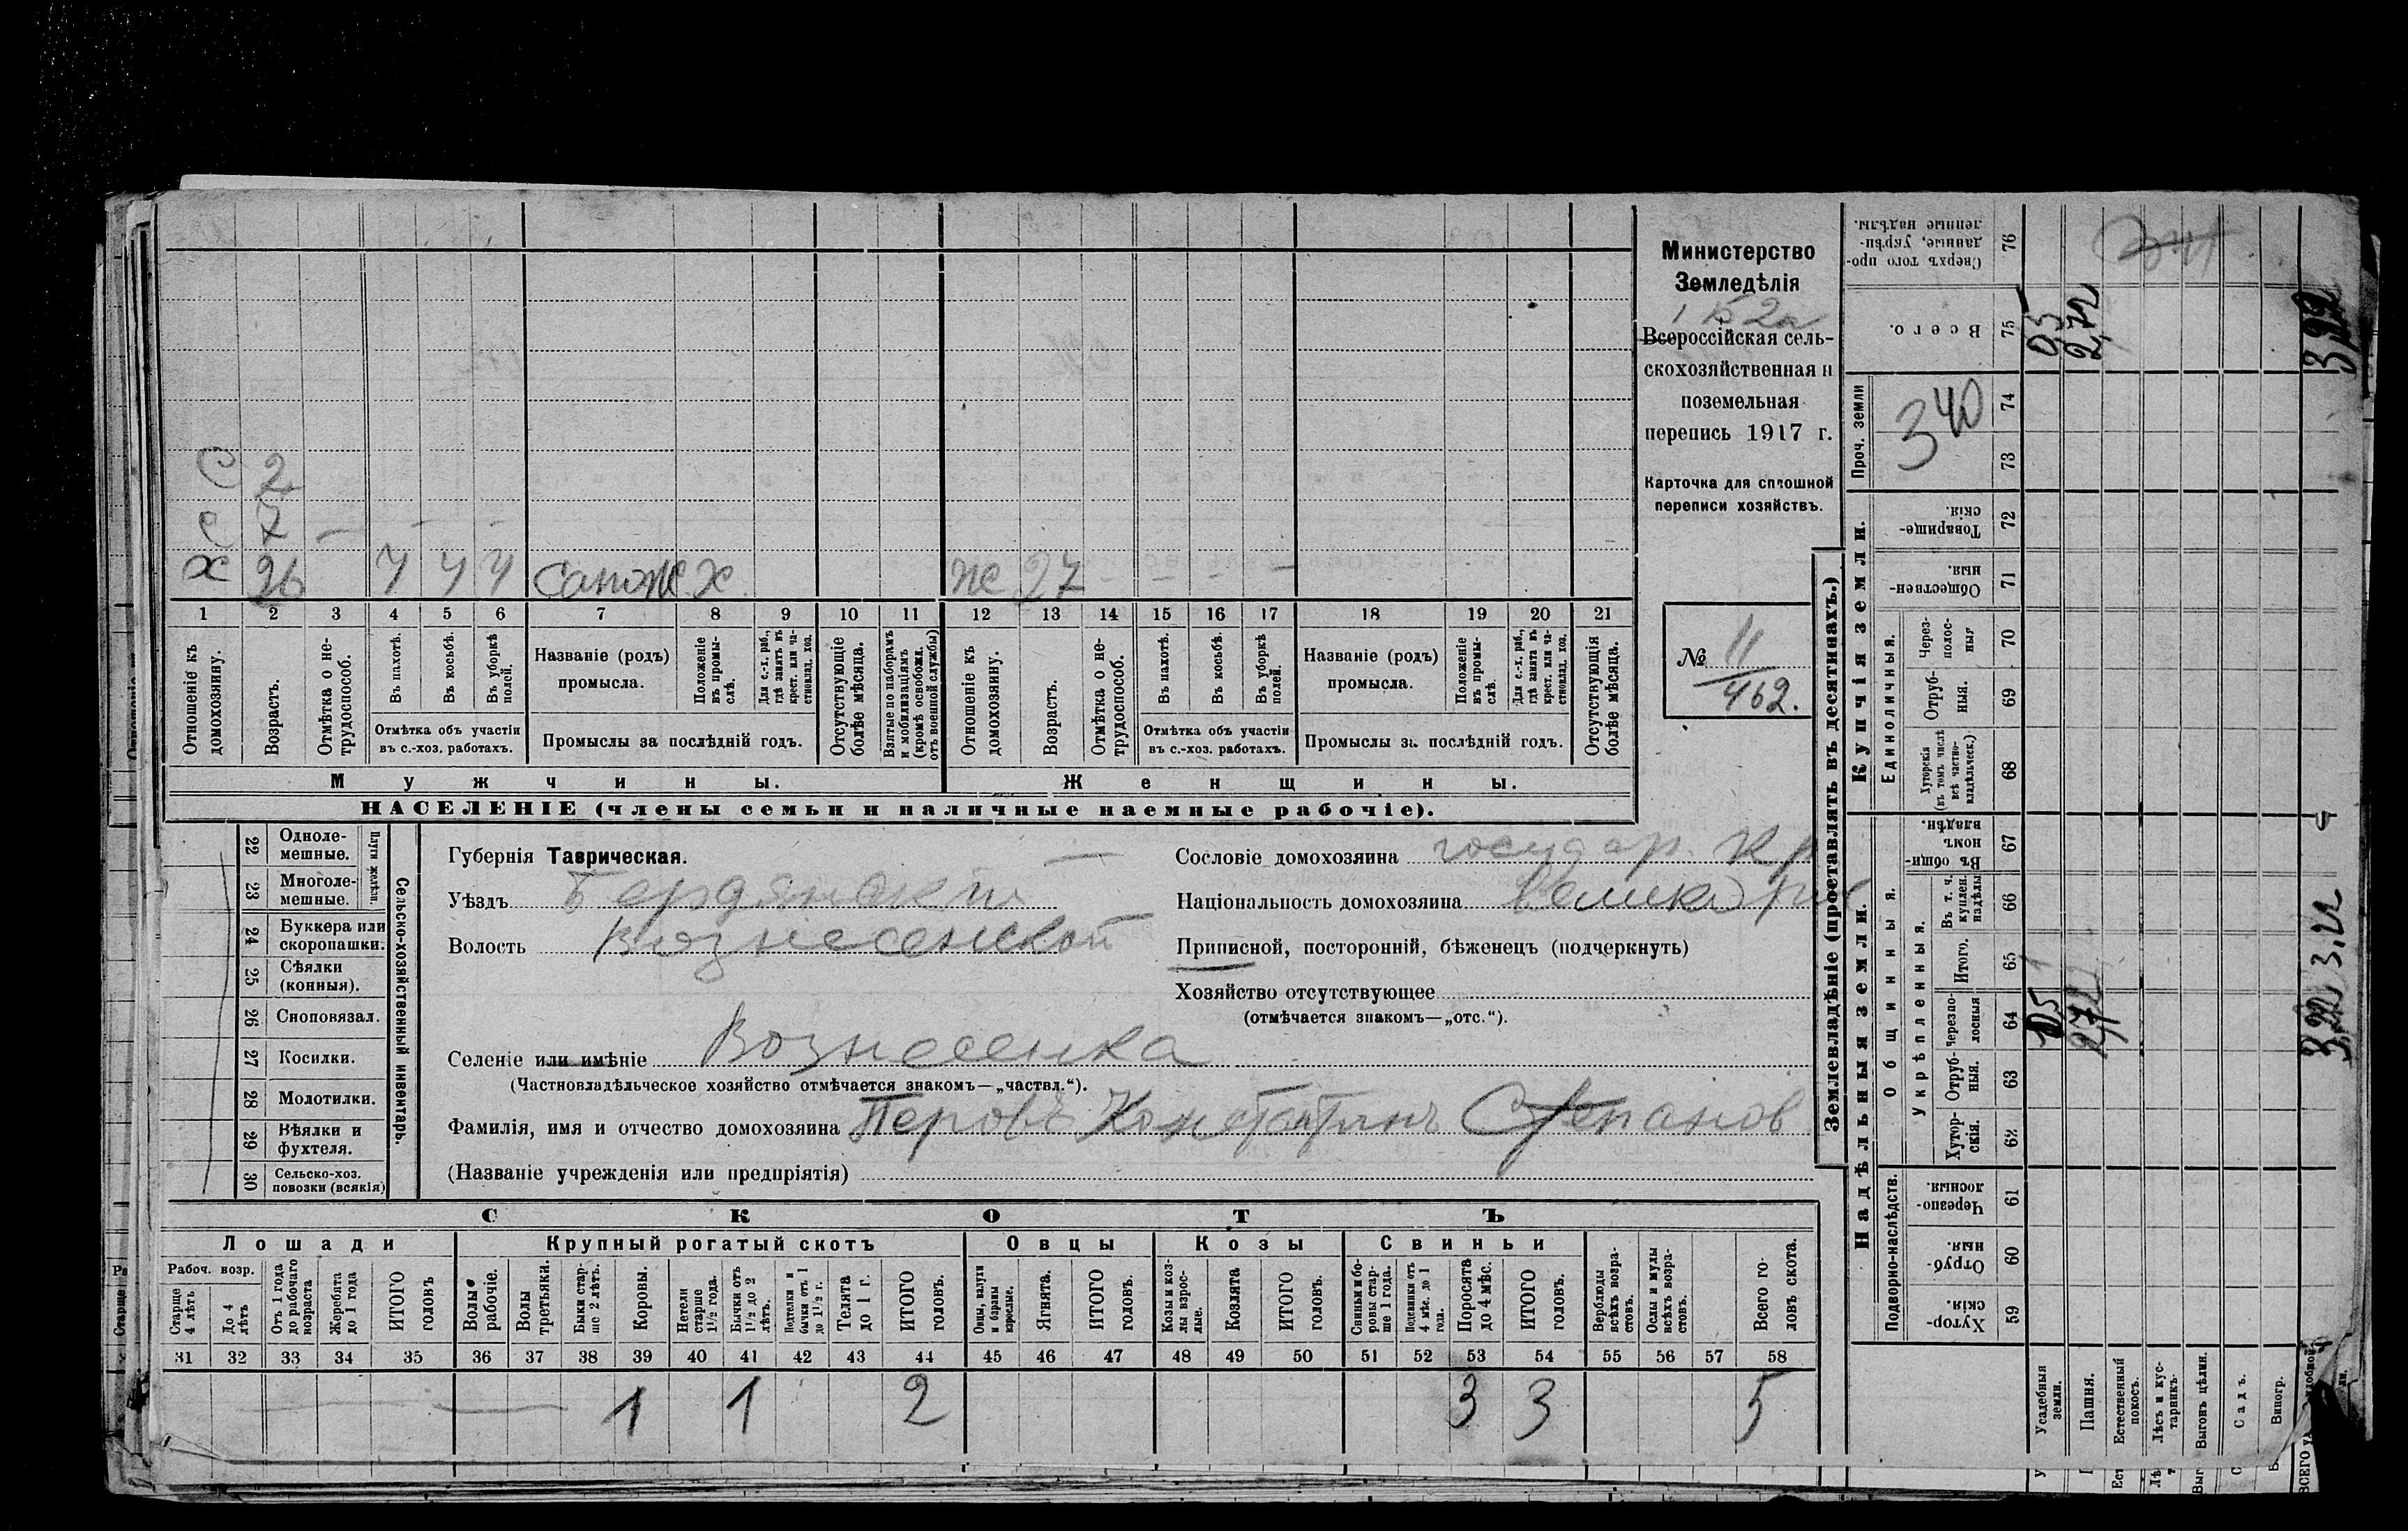 С 2
С 7 —
Х 26 Ч Ч Ч сапож. х. ж 27 — — — —
1 2 3 4 5 6 7 8 9 10 11 12 13 14 15 16 17 18 19 20 21
Отношеніе къ домохозяину.
Возрастъ.
Отмѣтка о не-трудоспособ.
Въ пахотѣ.
Въ косьбѣ.
Въ уборкѣ полей.
Отмѣтка объ участіи
въ с.-хоз. работахъ.
Названіе (родъ)
промысла.
Положеніе въ промы-слѣ.
Для с.-х. раб., гдѣ занятъ въ крест. или ча-стновлад. хоз.
Промыслы за послѣдній годъ.
Отсутствующіе болѣе мѣсяца.
Взятые по наборамъ и мобилизаціямъ (кромѣ освобожд. отъ военной службы)
Отношеніе къ домохозяину.
Возрастъ.
Отмѣтка о не-трудоспособ.
Въ пахотѣ.
Въ косьбѣ.
Въ уборкѣ полей.
Отмѣтка объ участіи
въ с.-хоз. работахъ.
Названіе (родъ)
промысла.
Положеніе въ промы-слѣ.
Для с.-х. раб., гдѣ занята въ крест. или ча-стновлад. хоз.
Промыслы за послѣдній годъ.
Отсутствующія болѣе мѣсяца.
Мужчины.
Женщины.
НАСЕЛЕНІЕ (члены семьи и наличные наемные рабочіе).
Министерство
Земледѣлія
Всероссійская сель-
скохозяйственная и
поземельная
перепись 1917 г.
Карточка для сплошной
переписи хозяйствъ.
№ 11
462.
22 Однолемешные.
23 Многолемешные.
Плуги желѣзн.
24 Буккера или скоропашки.
25 Сѣялки (конныя).
26 Сноповязал.
27 Косилки.
28 Молотилки.
29 Вѣялки и фухтеля.
30 Сельско-хоз. повозки (всякія)
Сельско-хозяйственный инвентарь.
Губернія Таврическая.
Уѣздъ Бердянскій
Волость Вознесенской
Селеніе или имѣніе Вознесенка
(Частновладѣльческое хозяйство отмѣчается знакомъ—„частвл.“).
Фамилія, имя и отчество домохозяина Перовъ Константинъ Степанов
(Названіе учрежденія или предпріятія)
Сословіе домохозяина государ. кр
Національность домохозяина великор
Приписной, посторонній, бѣженецъ (подчеркнуть)
Хозяйство отсутствующее
(отмѣчается знакомъ—„отс.“).
СКОТЪ
Лошади Крупный рогатый скотъ Овцы Козы Свиньи
Рабоч. возр.
Старще 4 лѣтъ
До 4 лѣтъ
Отъ 1 года до рабочаго возраста
Жеребята до 1 года
ИТОГО головъ
Волы рабочіе.
Волы третьяки.
Быки стар-ше 2 лѣтъ.
Коровы.
Нетели старше 1½ года.
Бычки отъ 1½ до 2 лѣтъ.
Подтелки и бычки отъ 1 до 1½ г.
Телята до 1 г.
ИТОГО головъ.
Овцы, валухи и бараны взрослые.
Ягнята.
ИТОГО головъ.
Козы и коз-лы взрос-лые.
Козлята
ИТОГО головъ.
Свиньи и бо-ровы стар-ше 1 года.
Подсвинки отъ 4 мѣс. до 1 года.
Поросята до 4 мѣс.
ИТОГО головъ.
Верблюды всѣхъ возра-стовъ.
Ослы и мулы всѣхъ возра-стовъ.
Всего го-ловъ скота.
31 32 33 34 35 36 37 38 39 40 41 42 43 44 45 46 47 48 49 50 51 52 53 54 55 56 57 58
1 1 2 3 3 5
Землевладѣніе (проставлять въ десятинахъ.)
Надѣльныя земли.
Купчія земли.
Подворно-наслѣдств.
Общинныя.
Укрѣпленныя.
Единоличныя.
Проч. земли
59 Хутор-скія.
60 Отруб-ныя.
61 Черезпо-лосныя.
62 Хутор-скія.
63 Отруб-ныя.
64 Черезпо-лосныя
65 Итого.
66 Въ т. ч. куплен. надѣлы
67 Въ общин-номъ владѣн.
68 Хуторскія (въ томъ числѣ всѣ частно-владѣльческ.)
69 Отруб-ныя.
70 Через-полос-ныя
71 Обществен-ныя.
72 Товарище-скія.
73 74
340
75 Всего.
76 Сверхъ того про-данные, укрѣп-ленные надѣлы.
Усадебныя земли. 05 0,5
Пашня. 2,72 2,72
Естественный покосъ.
Лѣсъ и кус-тарникъ.
Выгонъ цѣлин.
Садъ.
Виногр.
3,22 3.22 3,22